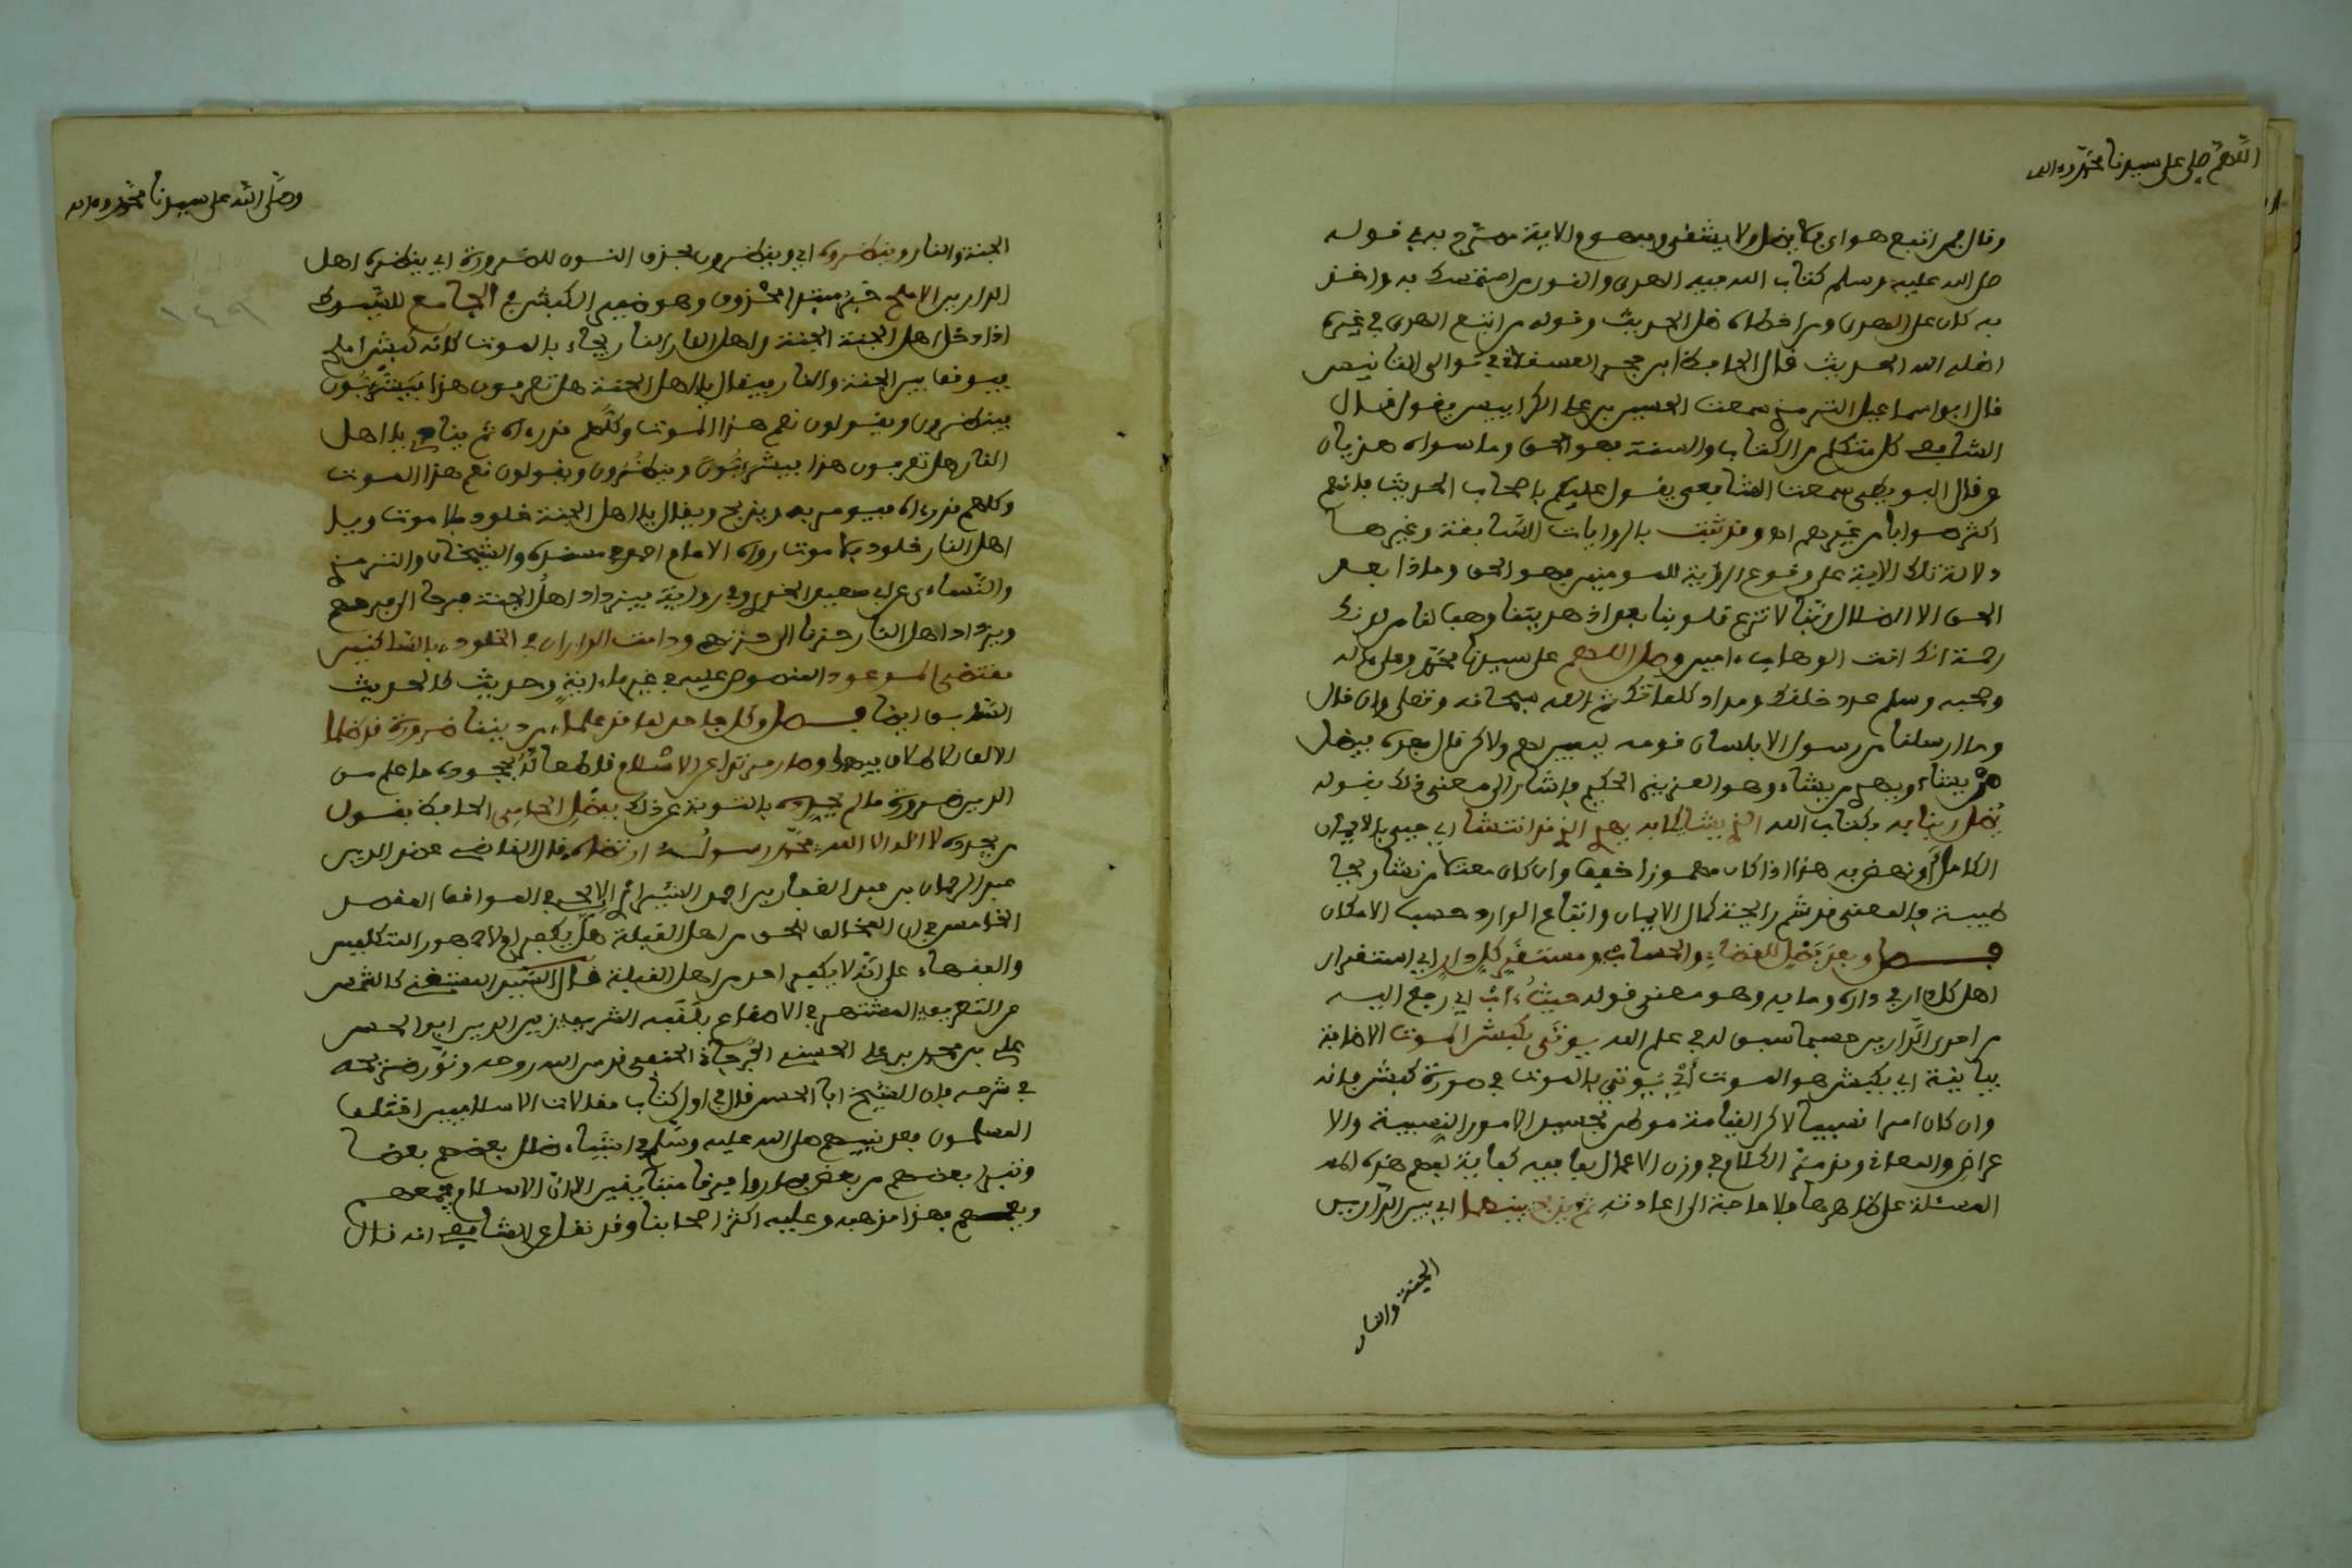 اللهم صل على سيدنا محمد وءاله
وقال فمن اتبع هداي فلا يضل ولا يشقى وبهموم الاية صرح به في قوله
صلى الله عليه وسلم كتاب الله فيه الهدى والنور من استمسك به واخذ
به كان على الهدى ومن اخطاه ضل الحديث وقوله من ابتغى الهدى في غيره
اضله الله الحديث قال الحافظ ابن حجر العسقلاني في توالى التانيس
قال ابو اسماعيل الترمذي سمعت الحسين بن على الكرابيسي يقول قال
الشافعي كل متكلم من الكتاب والسنة فهو الحق وما سواه هذيان
وقال البويطي سمعت الشافعي يقول عليكم باصحاب الحديث فانهم
اكثر صوابا من غيرهم اه وقد ثبت بالروايات السابقة وغيرها
دلالة تلك الاية على وقوع الرؤية للمومنين فهو الحق وماذا بعد
الحق الا الضلال ربنا لا تزغ قلوبنا بعد اذ هديتنا وهب لنا من لدنك
رحمة انك انت الوهاب ءامين وصل اللهم على سيدنا محمد وعلى ءاله
وصحبه وسلم عدد خلقك ومداد كلماتك ثم الله سبحانه وتعلى وان قال
وما ارسلنا من رسول الا بلسان قومه ليبين لهم ولاكن قال بعده فيضل
من يشاء ويهدي من يشاء وهو العزيز الحكيم فاشار الى معنى ذلك بقوله
يضل ربنا به بكتاب الله الذي يشا كما به يهدي الذي قد انتشا اي حيي بالايمان
الكامل او نهض به هذا اذا كان مهموزا خفيفا وان كان معتلا من نشا ريحا
طيبة فالمعنى قد شم رايحة كمال الايمان واتباع الوارد حسب الامكان
فصل وبعد فصل للقضاء والحساب ومستقر كل دار اي استقرار
اهل كل دار في داره وما به وهو معنى قوله حيث ءاب اي رجع اليه
من احدى الدارين حسبما سبق له في علم الله يوتى بكبش الموت الاضافة
بيانية اي بكبش هو الموت اي يوتى بالموت في صورة كبش فانه
وان كان امرا نسبيا لاكن القيامة موطن تجسيد الامور النسبية والا
عراض والمعاني وقد مر الكلام في وزن الاعمال بما فيه كفاية لفهم هذه
المسئلة على ظاهرها فلا حاجة الى اعادته ثم يذبح بينهما اي بين الدارين
الجنة والنار
وصلى الله على سيدنا محمد وءاله
الجنة والنار وينظروه اي وينظرون بحذف النون للضرورة اي ينظره اهل
الدارين الاملح خبر مبتدا محذوف وهو ضمير الكبش في الجامع للسيوطي
اذا دخل اهل الجنة الجنة واهل النار النار يجاء بالموت كانه كبش املح
فيوقف بين الجنة والنار فيقال يا اهل الجنة هل تعرفون هذا فيشرئبون
فينظرون ويقولون نعم هذا الموت وكلهم قد رءاه ثم ينادى يا اهل
النار هل تعرفون هذا فيشرئبون وينظرون ويقولون نعم هذا الموت
وكلهم قد رءاه فيومر به ويذبح ويقال يا اهل الجنة خلود فلا موت ويا
اهل النار خلود فلا موت رواه الامام احمد في مسنده والشيخان والترمذي
والنساءي عن ابي سعيد الخدري وفي رواية فيزداد اهل الجنة فرحا الى فرحهم
ويزداد اهل النار حزنا الى حزنهم ودامت الداران في الخلود بالساكنين
مقتضى الموعود المنصوص عليه في غير ما ءاية وحديث كالحديث
السابق ايضا فصل وكل جاحد لما قد علما من ديننا ضرورة قد ظلما
الدين ضرورة ما لم يجدد بالتوبة عن ذلك بفضل الحافظ يقول
من يجدده لا اله الا الله محمد رسول ارتضاه قال القاضي عضد الدين
عبد الرحمان بن عبد الغفار بن احمد الايجي في المواقف المقصد
الخامس في ان المخالف للحق من اهل القبلة هل يكفر اولا جمهور المتكلمين
والفقهاء على انه لا يكفر احد من اهل القبلة قال السيد المستغني كالشمس
عن التعريف المشتهر في الاصقاع بلقبه الشريف زين الدين ابو الحسن
على بن محمد بن على الحسيني الجرجاني الحنفي قدس الله روحه ونور ضريحه
في شرحه فان الشيخ ابا الحسن قال في اول كتاب مقالات الاسلاميين اختلف
المسلمون بعد نبيهم صلى الله عليه وسلم في اشياء ضلل بعضهم بعضا
وتبرا بعضهم من بعض فصاروا فرقا متباينين الا ان الاسلام يجمعهم
ويعمهم فهذا مذهبه وعليه اكثر اصحابنا وقد نقل عن الشافعي انه قال